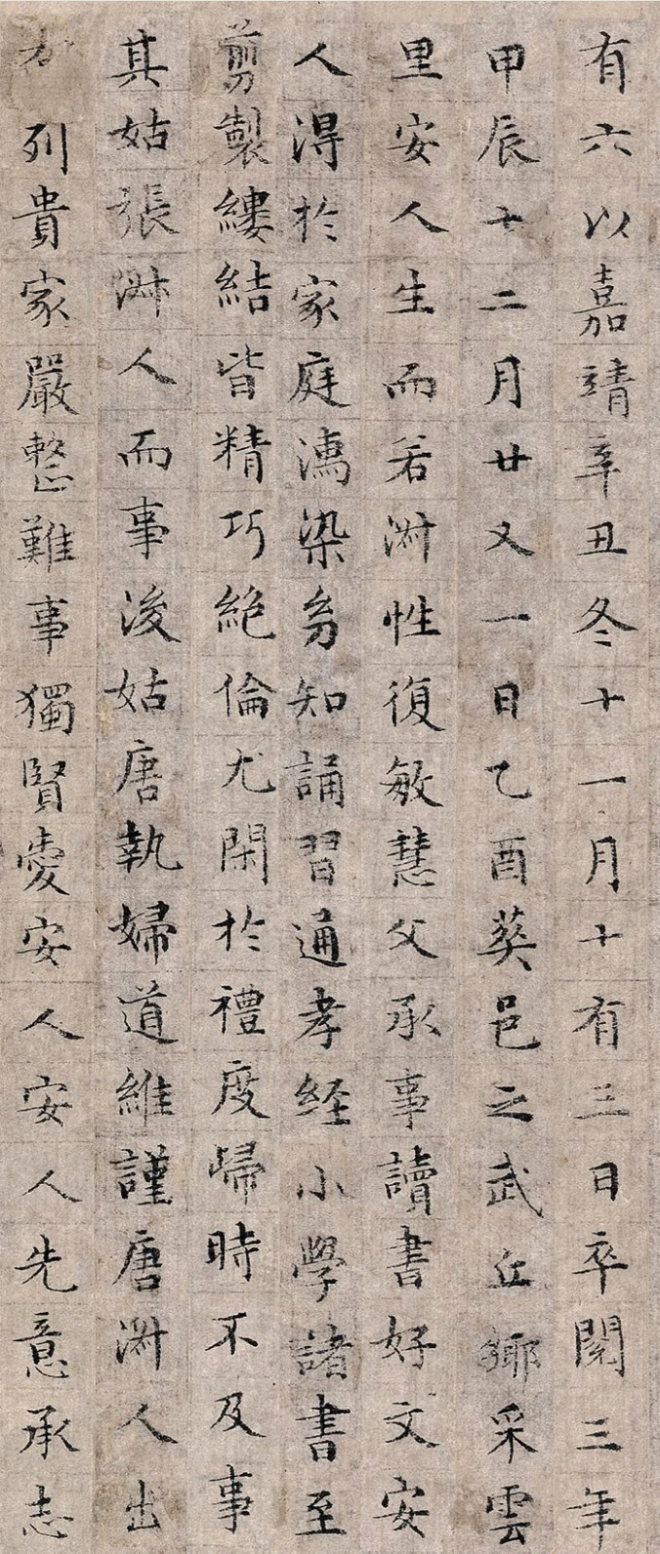 有六以嘉靖辛丑冬十一月十有三日卒閱三年
甲辰十二月廿又一日乙酉葵邑之武丘鄉采雲
里安人生而若淑性復敏慧父承事讀書好文安
人淂於家庭濡染㓜知誦習通孝経小學諸書至
剪製縷結皆精巧絕倫尤閑於禮度歸時不及事
其姑張淑人而事後姑唐執婦道維謹唐淑人出
列貴家嚴整難事獨賢愛安人安人先意承志